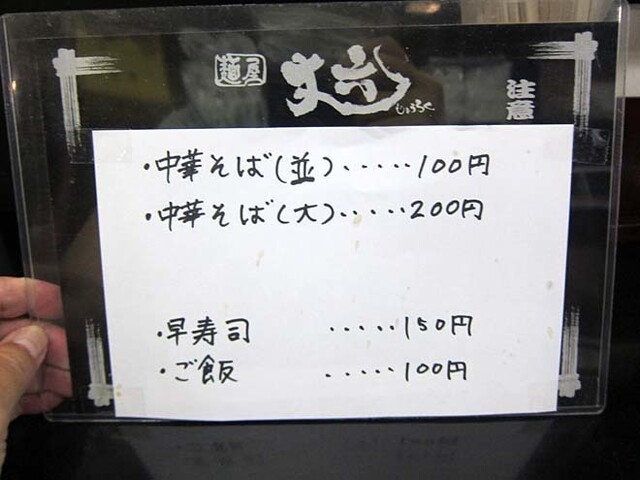 麺屋 丈六
じょうろく
注意
・中華そば(並)・・・・・100円
・中華そば(大)・・・・・200円
・早寿司 ・・・・・150円
・ご飯 ・・・・・100円